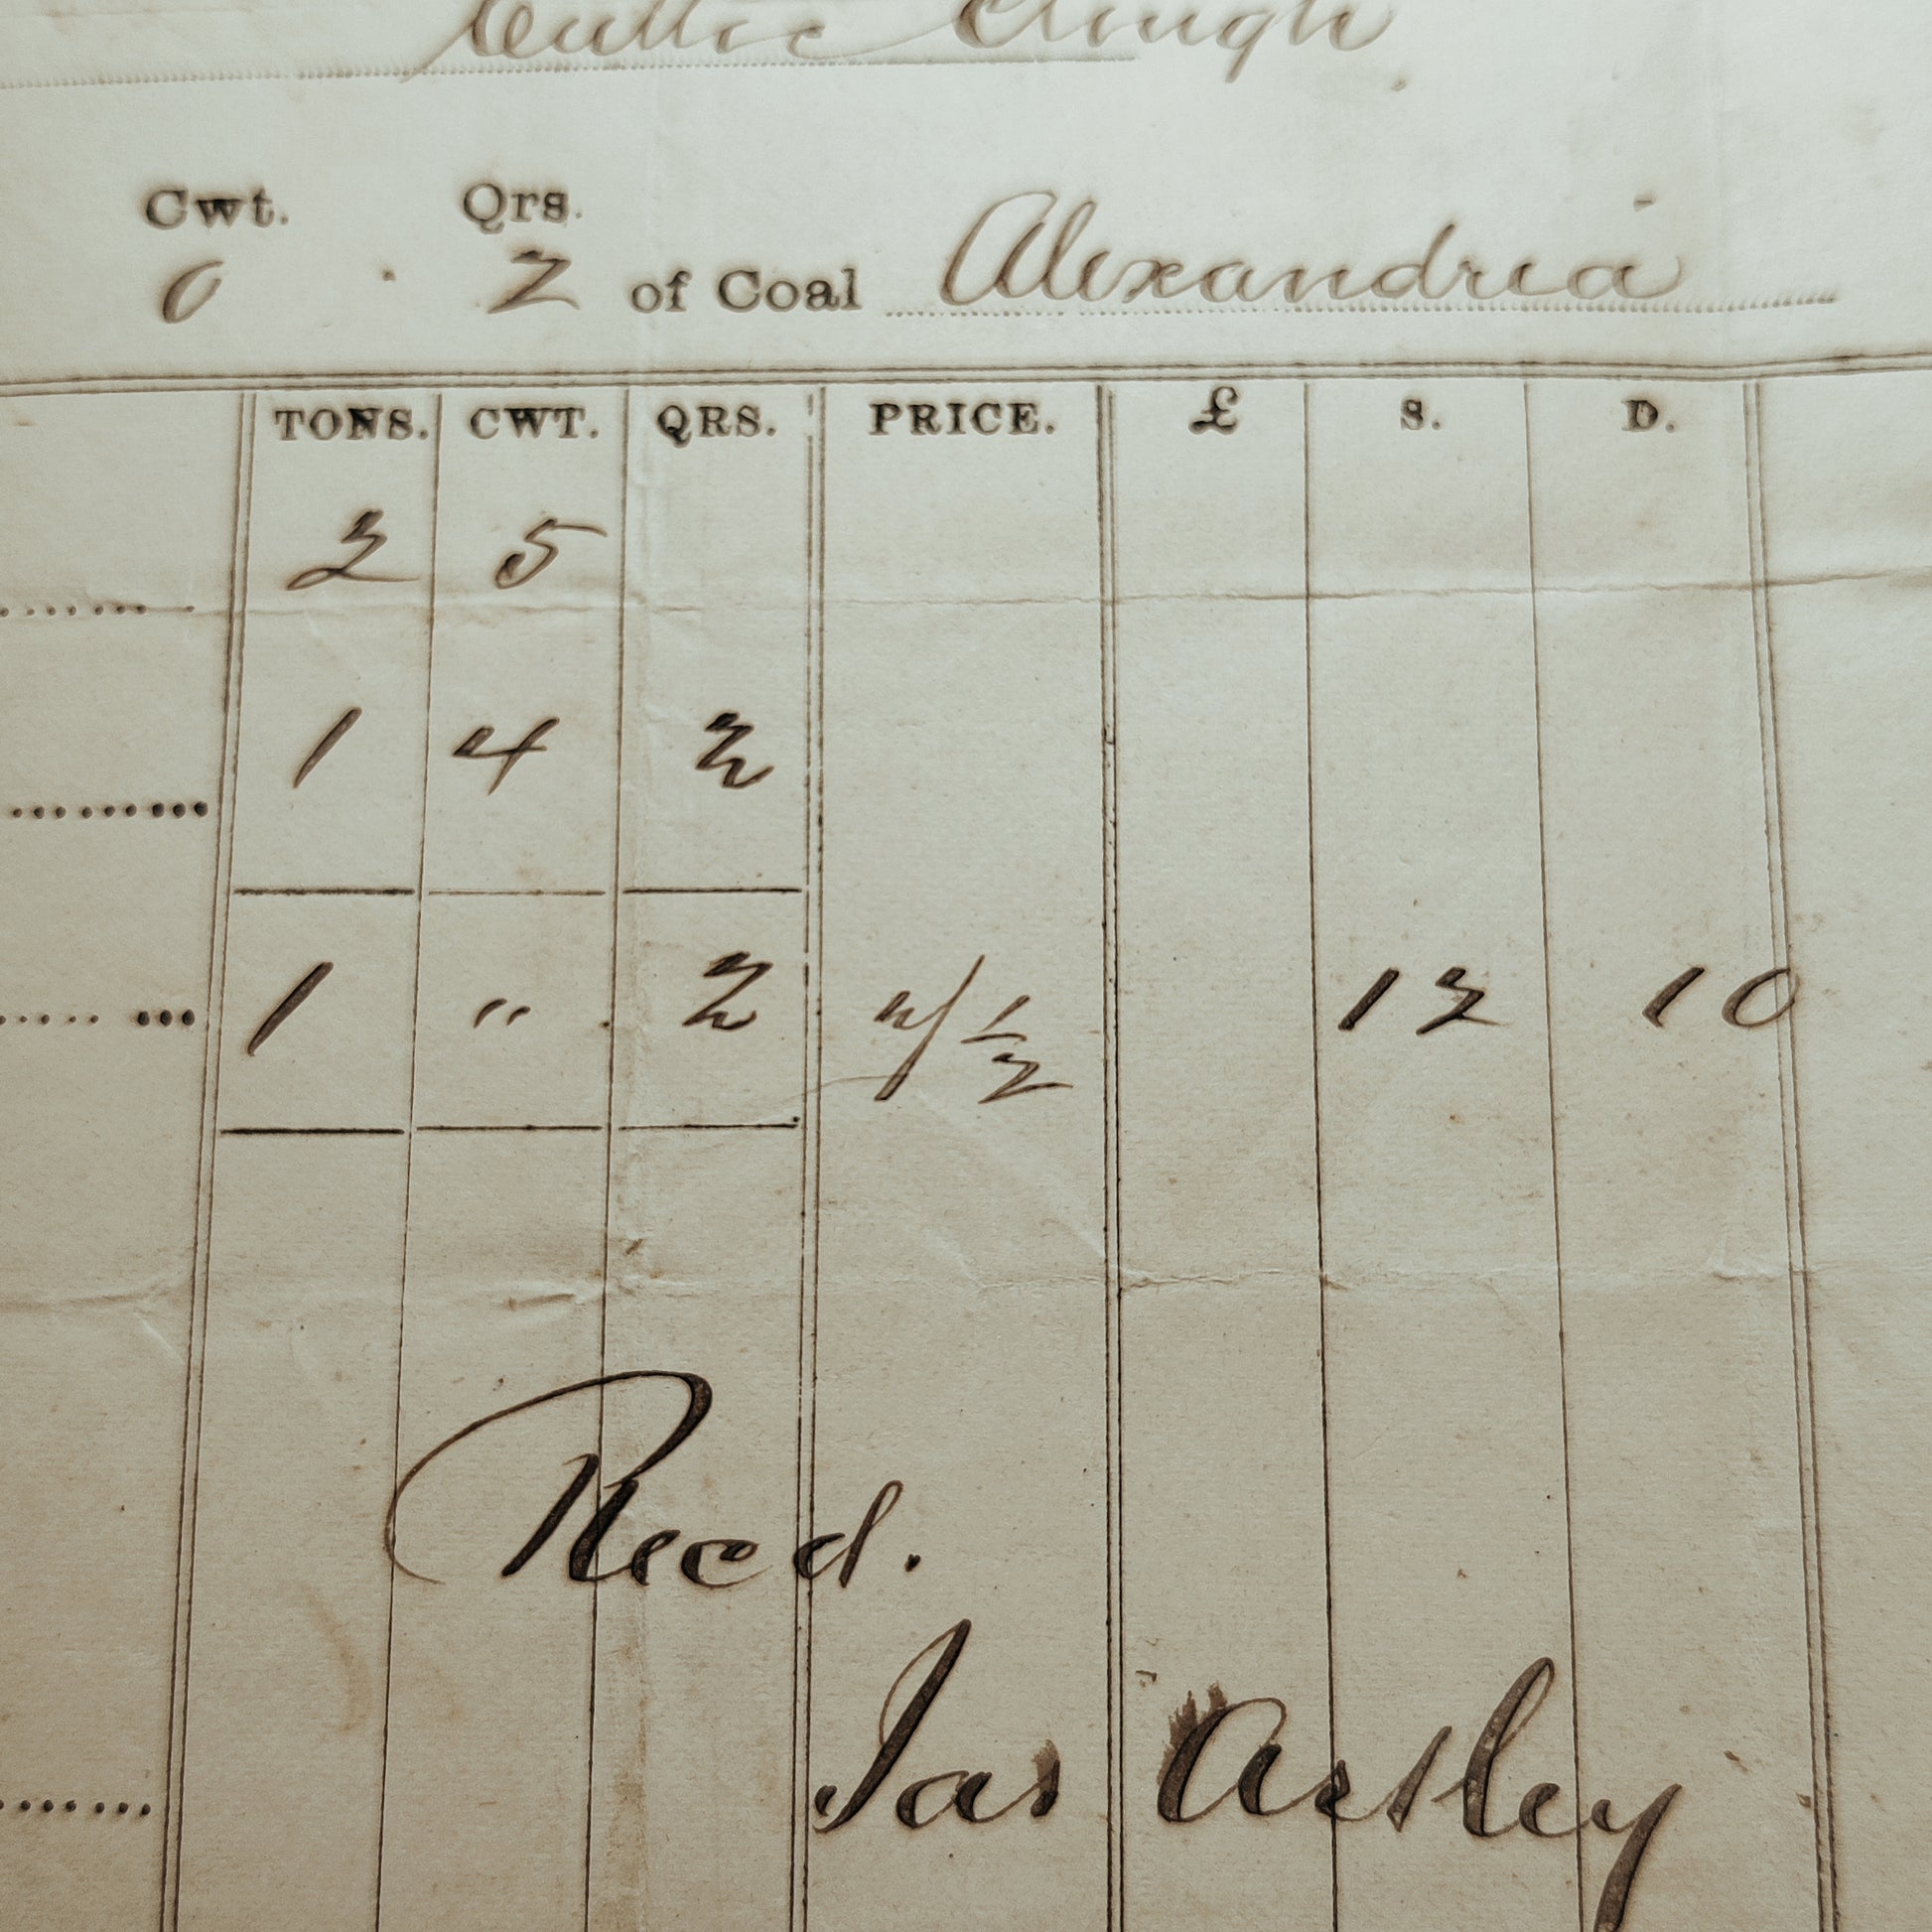 Clough
Cwt. Qrs.
0 . 2 of Coal Alexandria
TONS. CWT. QRS. PRICE. £ S. D.
2 5
1 4 2
1 " 2 7½ 12 10
Recd.
Jas Astley